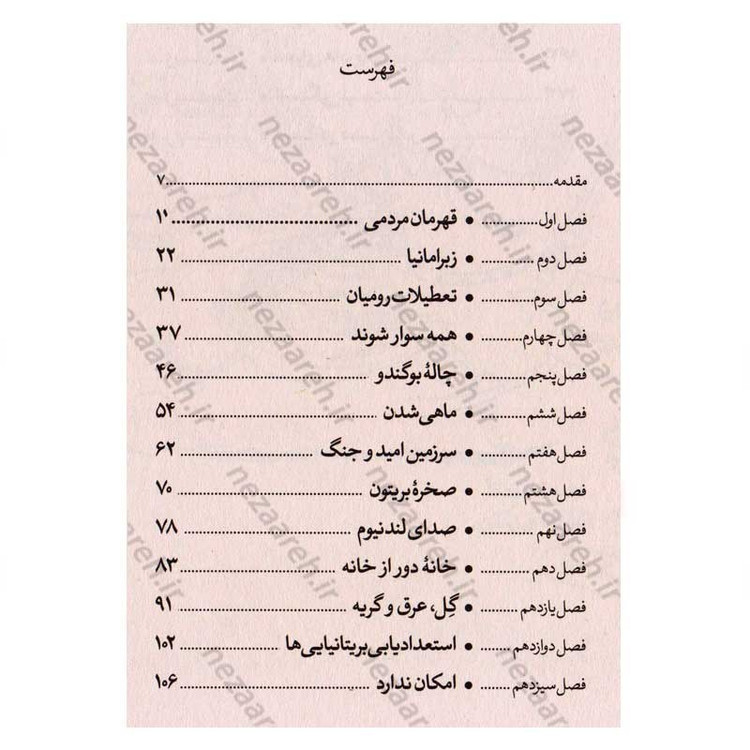 فهرست
مقدمه ... ۷
فصل اول ... • قهرمان مردمی ... ۱۱
فصل دوم ... • زبرامانیا ... ۲۲
فصل سوم ... • تعطیلات رومیان ... ۳۱
فصل چهارم ... • همه سوار شوند ... ۳۷
فصل پنجم ... • چالهٔ بوگندو ... ۴۶
فصل ششم ... • ماهی شدن ... ۵۴
فصل هفتم ... • سرزمین امید و جنگ ... ۶۲
فصل هشتم ... • صخرهٔ بریتون ... ۷۰
فصل نهم ... • صدای لندنیوم ... ۷۸
فصل دهم ... • خانهٔ دور از خانه ... ۸۳
فصل یازدهم ... • گِل، عرق و گریه ... ۹۱
فصل دوازدهم ... • استعدادیابی بریتانیایی‌ها ... ۱۰۲
فصل سیزدهم ... • امکان ندارد ... ۱۰۶
nezaareh.ir